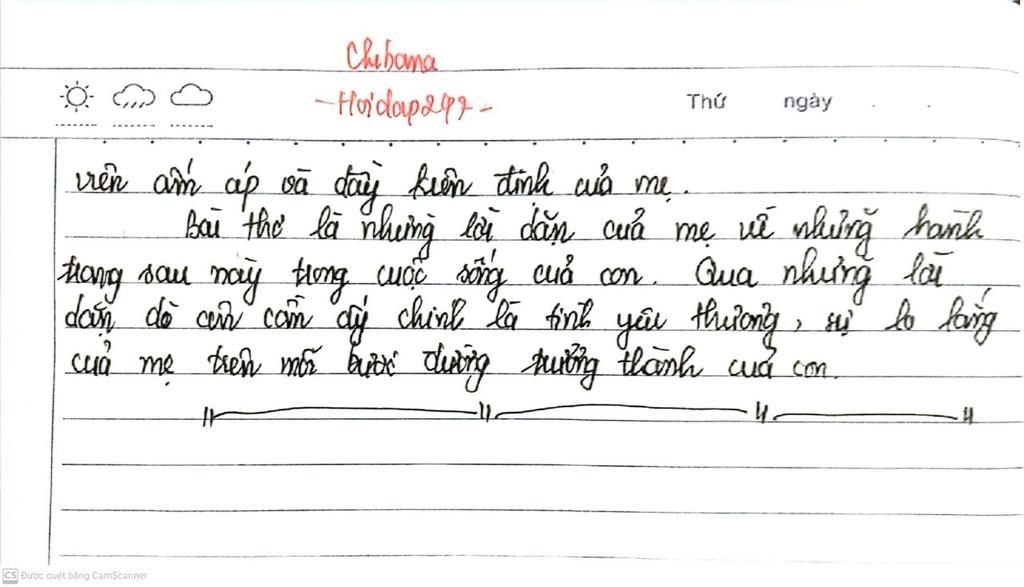 Chibana
-Hoidap247-
Thứ ngày . .
viên ấm áp và đầy kiên định của mẹ.
Bài thơ là những lời dặn của mẹ về những hành
trang sau này trong cuộc sống của con. Qua những lời
dặn dò cẩn ấy chính là tình yêu thương, sự lo lắng
của mẹ trên mỗi bước đường trưởng thành của con.
CS Được quét bằng CamScanner